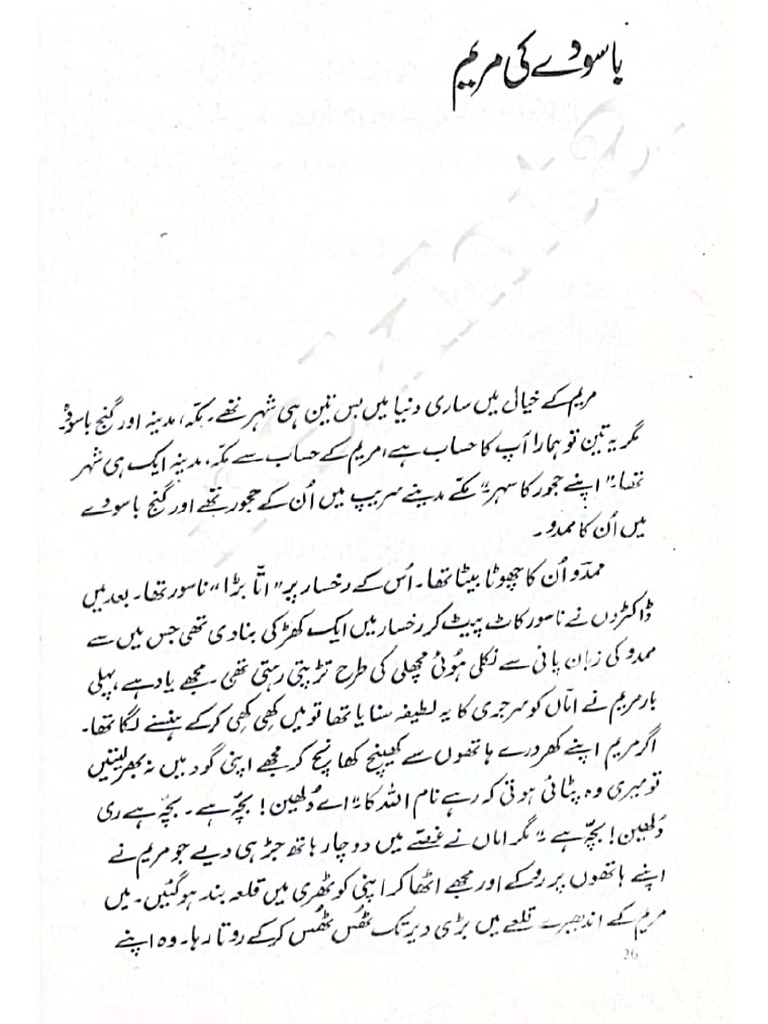 باسودے کی مریم
مریم کے خیال میں ساری دنیا میں بس تین ہی شہر تھے۔ مکہ، مدینہ اور گنج باسودہ۔
مگر یہ تین تو ہمارا آپ کا حساب ہے، مریم کے حساب سے مکہ، مدینہ ایک ہی شہر
تھا۔ "اپنے حجور کا سہر" مکے مدینے سریپ میں اُن کے حجور تھے اور گنج باسودے
میں اُن کا ممدو۔
ممدو اُن کا چھوٹا بیٹا تھا۔ اُس کے رخسار پر "اتّا بڑا" ناسور تھا۔ بعد میں
ڈاکٹروں نے ناسور کاٹ پیٹ کر رخسار میں ایک کھڑکی بنا دی تھی جس میں سے
ممدو کی زبان پانی سے نکلی ہوئی مچھلی کی طرح تڑپتی رہتی تھی۔ مجھے یاد ہے، پہلی
بار مریم نے اماں کو سرجری کا یہ لطیفہ سنایا تھا تو میں کھی کھی کر کے ہنسنے لگا تھا۔
اگر مریم اپنے کھردرے ہاتھوں سے کھینچ کھانچ کر مجھے اپنی گود میں نہ بھر لیتیں
تو میری وہ پٹائی ہوتی کہ رہے نام اللہ کا۔ "اے دُلھین! بچہ ہے۔ بچہ ہے ری
دُلھین! بچہ ہے۔" مگر اماں نے غصّے میں دو چار ہاتھ جڑ ہی دیے جو مریم نے
اپنے ہاتھوں پر روکے اور مجھے اٹھا کر اپنی کوٹھری میں قلعہ بند ہو گئیں۔ میں
مریم کے اندھیرے قلعے میں بڑی دیر تک ٹھُس ٹھُس کر کے روتا رہا۔ وہ اپنے
26